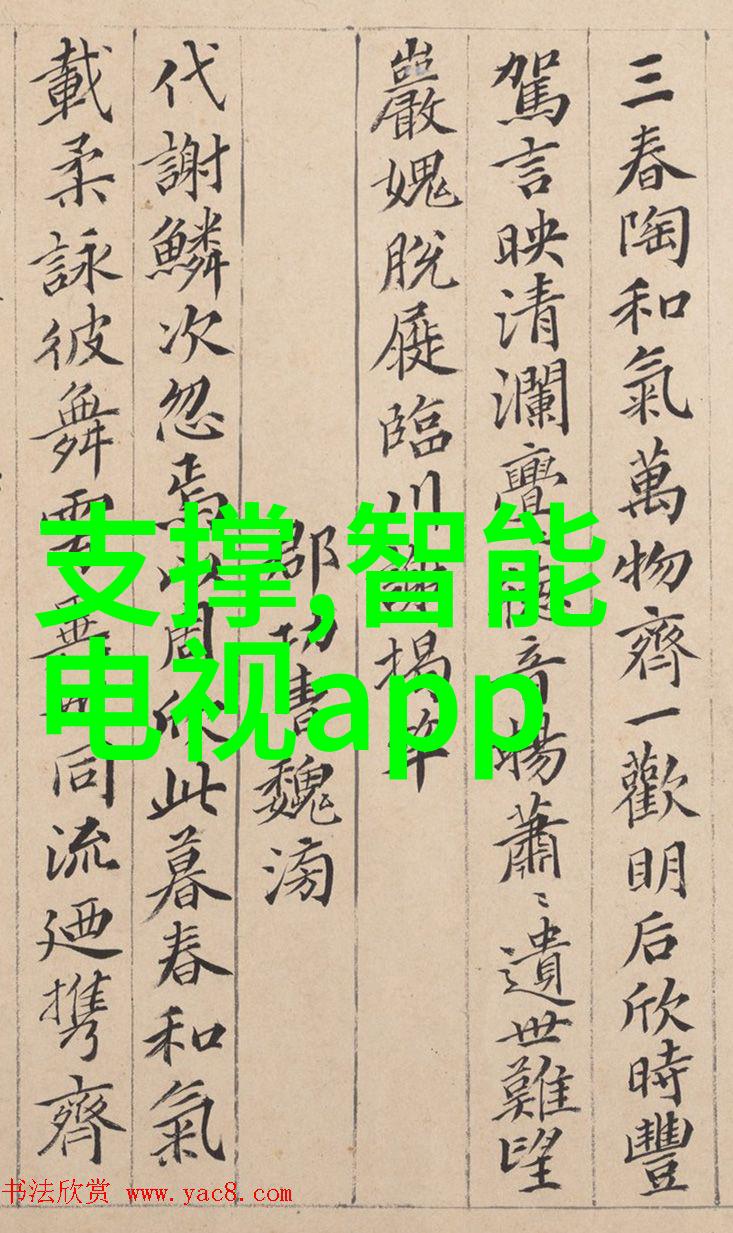 三春陶和氣萬物齊一歡明后欣時豐
駕言映清瀾亹德音暢蕭〻遺世難望
巖愧脫屣臨川謝揭竿
郡功曹魏滂
代謝鱗次忽焉以周欣此暮春和氣
載柔詠彼舞雩異世同流廼携齊
支撑,智能
电视app
书法欣赏 www.yac8.com